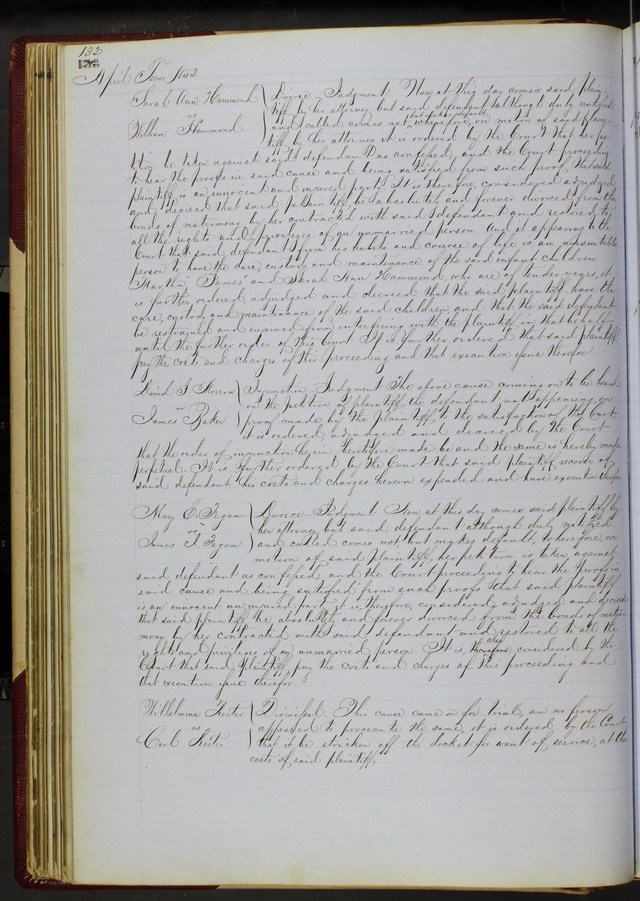 133
138
April Term 1853.
Sarah Ann Hammond Divorce Judgment. Now at this day comes said plain
vs tiff by her attorney but said defendant although duly notified
William Hammond and called comes not but makes default, wherefore, on motion of said plain-
tiff by her attorney it is ordered by the Court that her pe-
tition be taken against said defendant as confessed, and the Court proceeding
to hear the proofs in said cause and being satisfied from such proof that said
plaintiff is an innocent and injured party It is therefore, considered adjudged
and decreed that said plaintiff be absolutely and forever divorced from the
bonds of matrimony by her contracted with said defendant and restored to
all the rights and privileges of an unmarried person. And it appearing to the
Court that said defendant from his habits and course of life is an unsuitable
person to have the care, custody and maintenance of the said infant children
Martha James and Sarah Ann Hammond who are of tender years, it
is further ordered adjudged and decreed that the said plaintiff have the
care, custody and maintenance of the said children and that the said defendant
be restrained and enjoined from interfering with the plaintiff in that behalf
until the further order of this Court. It is further ordered that said plaintiff
pay the costs and charges of this proceeding and that execution issue therefor
David F. Injunction Judgment The above cause coming on to be heard
vs on the petition of plaintiff, the defendant not appearing, on
James Baker proof made by the plaintiff to the satisfaction of the Court
it is ordered, adjudged and decreed by the Court
that the order of injunction herein heretofore made be and the same is hereby made
perpetual. It is further ordered by the Court that said plaintiff recover of
said defendant his costs and charges herein expended and have execution therefor.
Mary E. Fegan Divorce Judgment Now at this day comes said plaintiff by
vs her attorney but said defendant although duly notified
James T. Fegan and called comes not but makes default, wherefore, on
motion of said plaintiff her petition is taken against
said defendant as confessed, and the Court proceeding to hear the proofs in
said cause and being satisfied from such proofs that said plaintiff
is an innocent and injured party it is, therefore, considered, adjudged and decreed
that said plaintiff be absolutely and forever divorced from the bonds of matri-
mony by her contracted with said defendant and restored to all the
rights and privileges of an unmarried person. It is, therefore also considered by the
Court that said plaintiff pay the costs and charges of this proceeding and
that execution issue therefor.
Wilhelmina Dismissal. This cause came on for trial, and no person
vs appeared to prosecute the same, it is ordered by the Court
Carl that it be stricken off the docket for want of service, at the
costs of said plaintiff